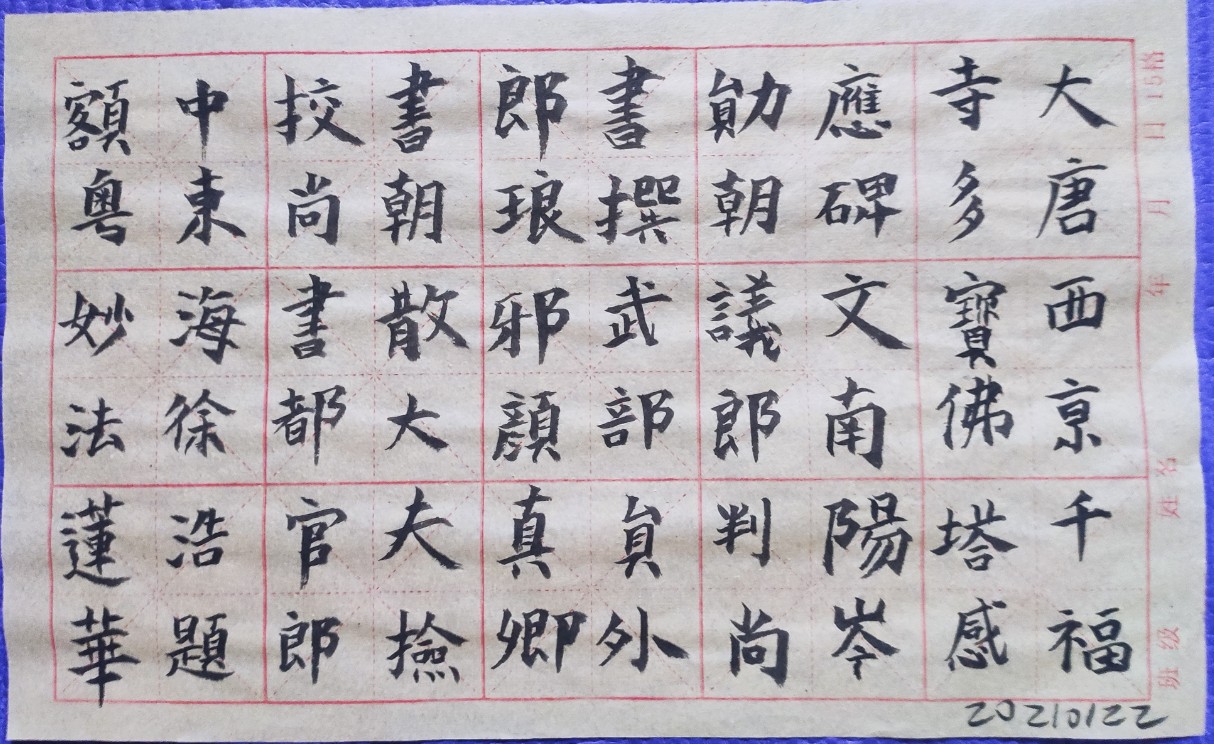 大唐西京千福
寺多寶佛塔感
應碑文南陽岑
勛朝議郎判尚
書撰武部員外
郎琅邪顏真卿
書朝散大夫撿
挍尚書都官郎
中東海徐浩題
額粤妙法蓮華
班级 姓名 年 月 日 15格
20210122